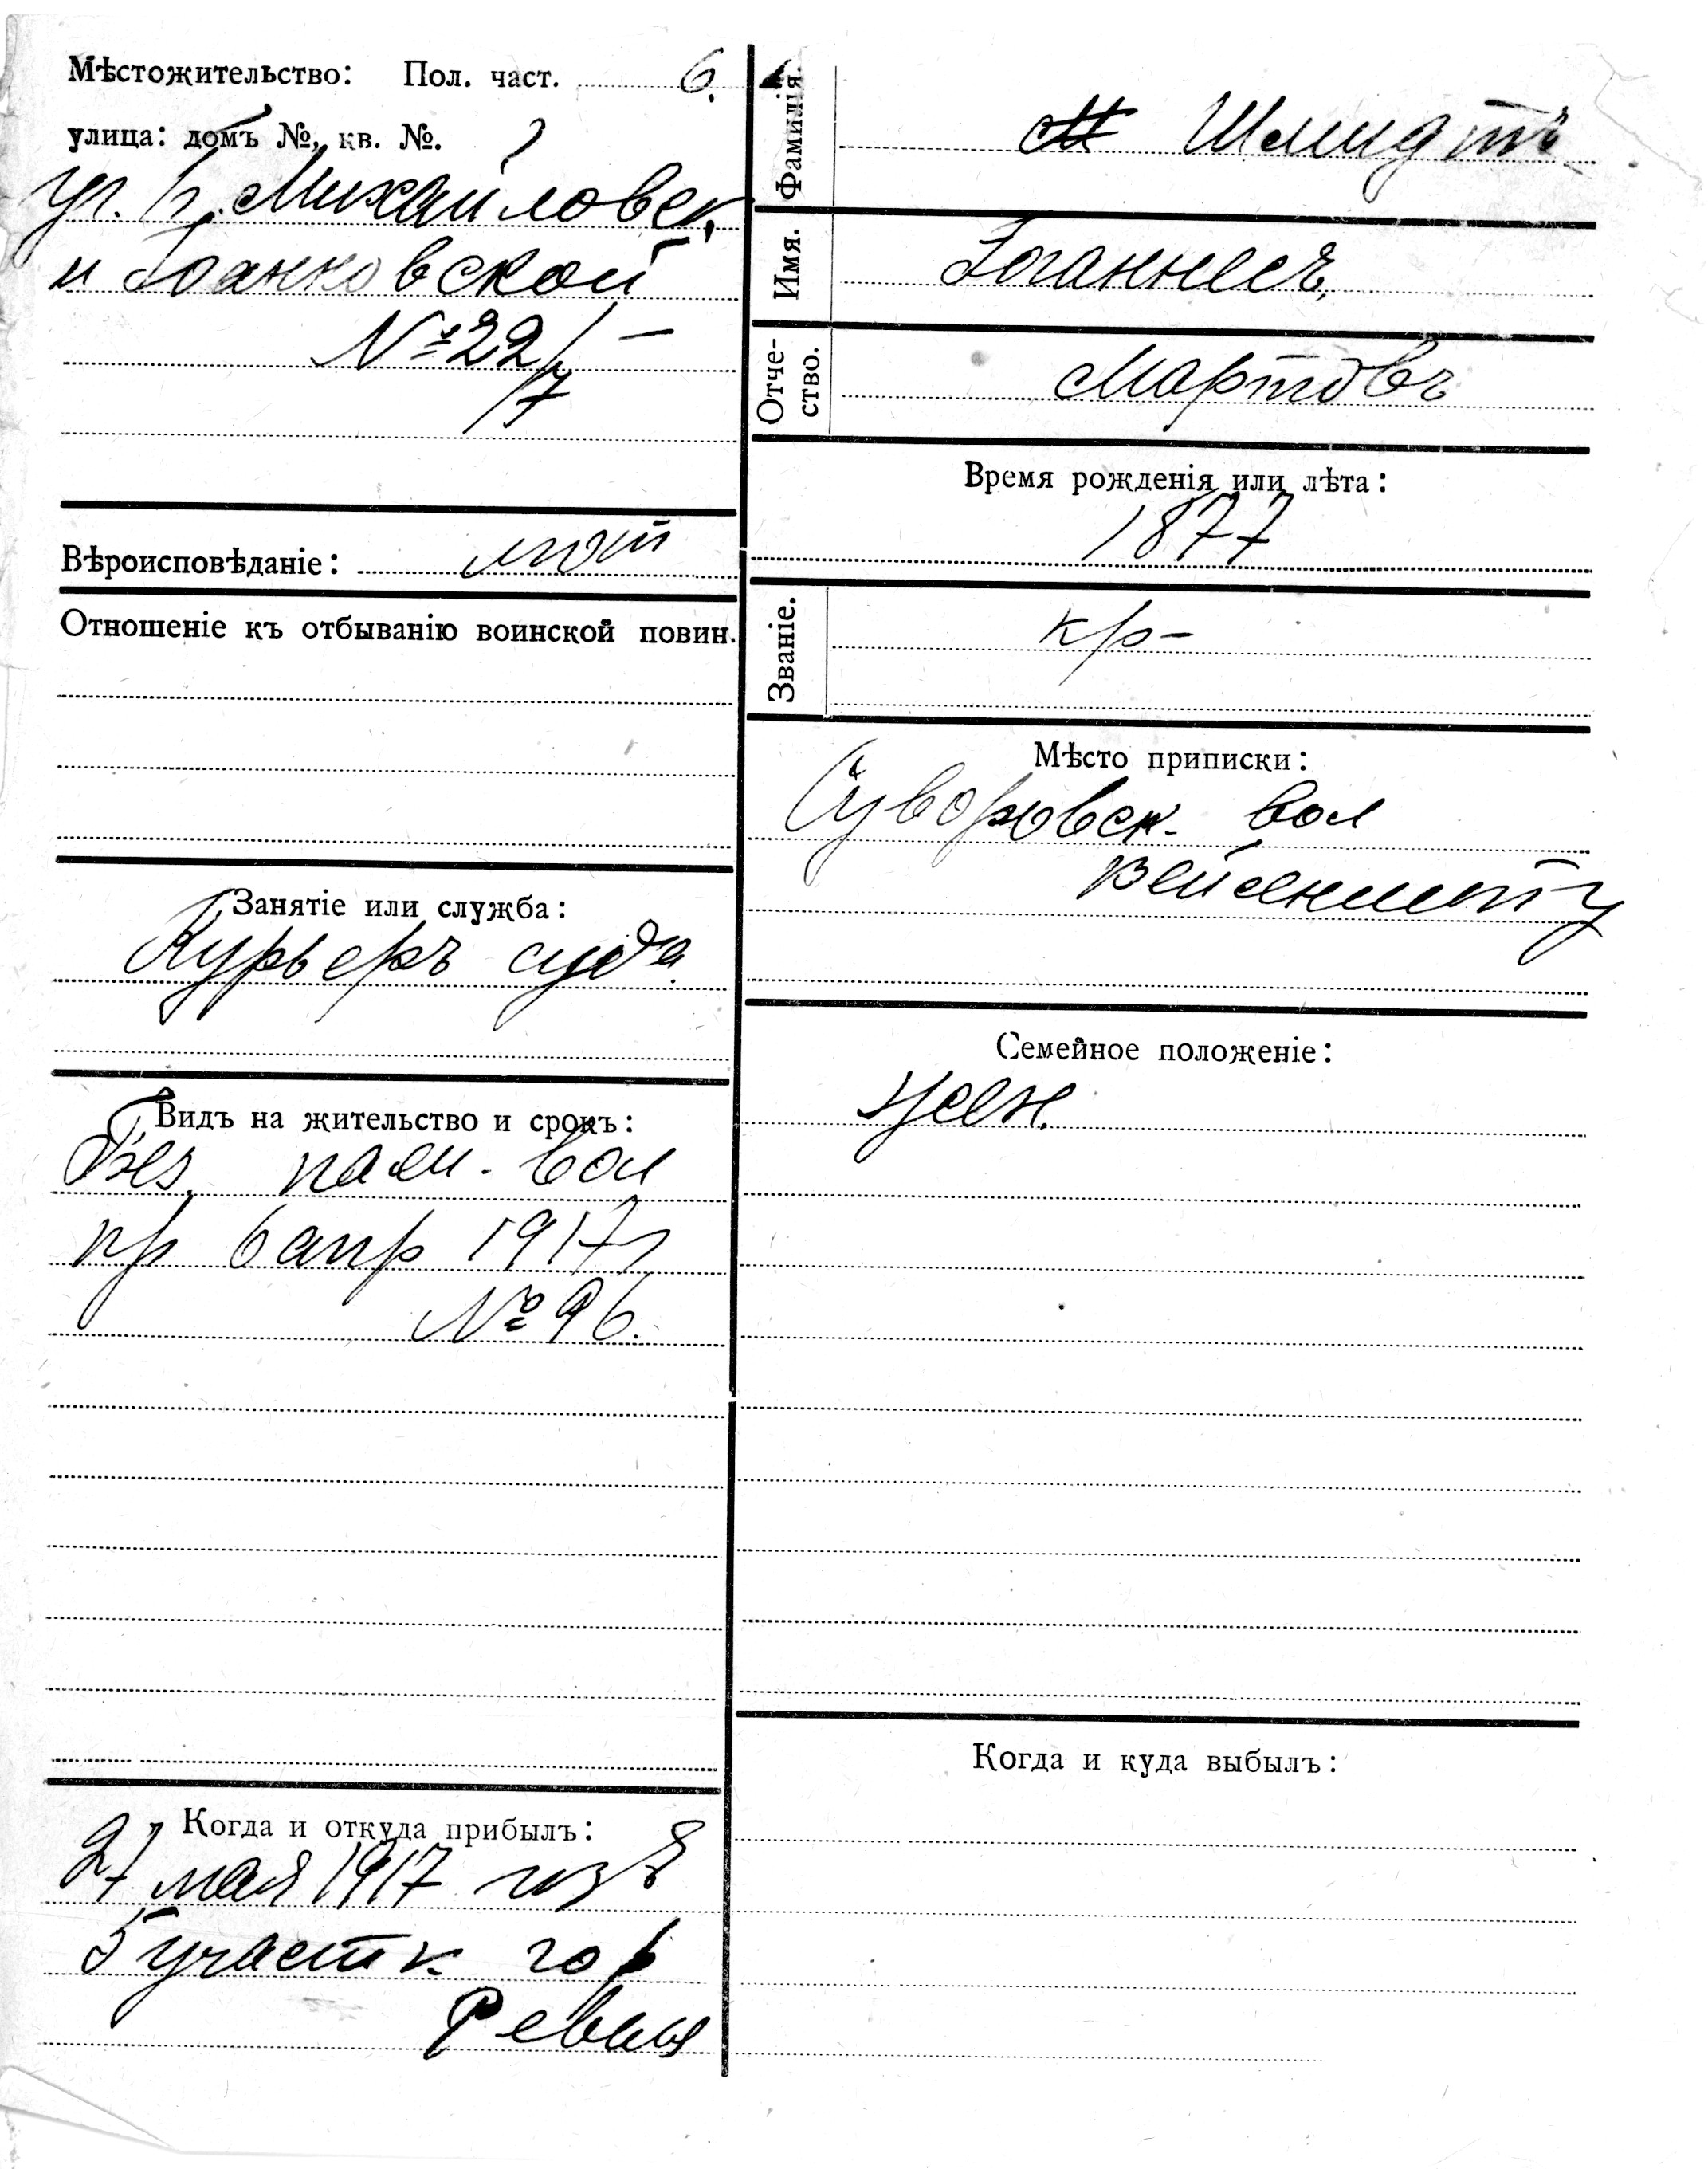 Мѣстожительство: Пол. част. 6.
улица: домъ №, кв. №.
уг. Б. Михайловск.
и Іоанновской
№ 22/7 –
Вѣроисповѣданіе: лют
Отношеніе къ отбыванію воинской повин.
Занятіе или служба:
Курьеръ суда.
Видъ на жительство и срокъ:
Без. пасп. вол
пр 6 апр 1917 г
№ 96.
Когда и откуда прибылъ:
27 мая 1917 изъ
5 участк гор
Ревеля
Фамилія. Шмидтъ
Имя. Іоганнесъ
Отче-
ство. Мартовъ
Время рожденія или лѣта:
1877
Званіе. кр-
Мѣсто приписки:
Суворовск. вол
Вейсеншт у
Семейное положеніе:
жен.
Когда и куда выбылъ: